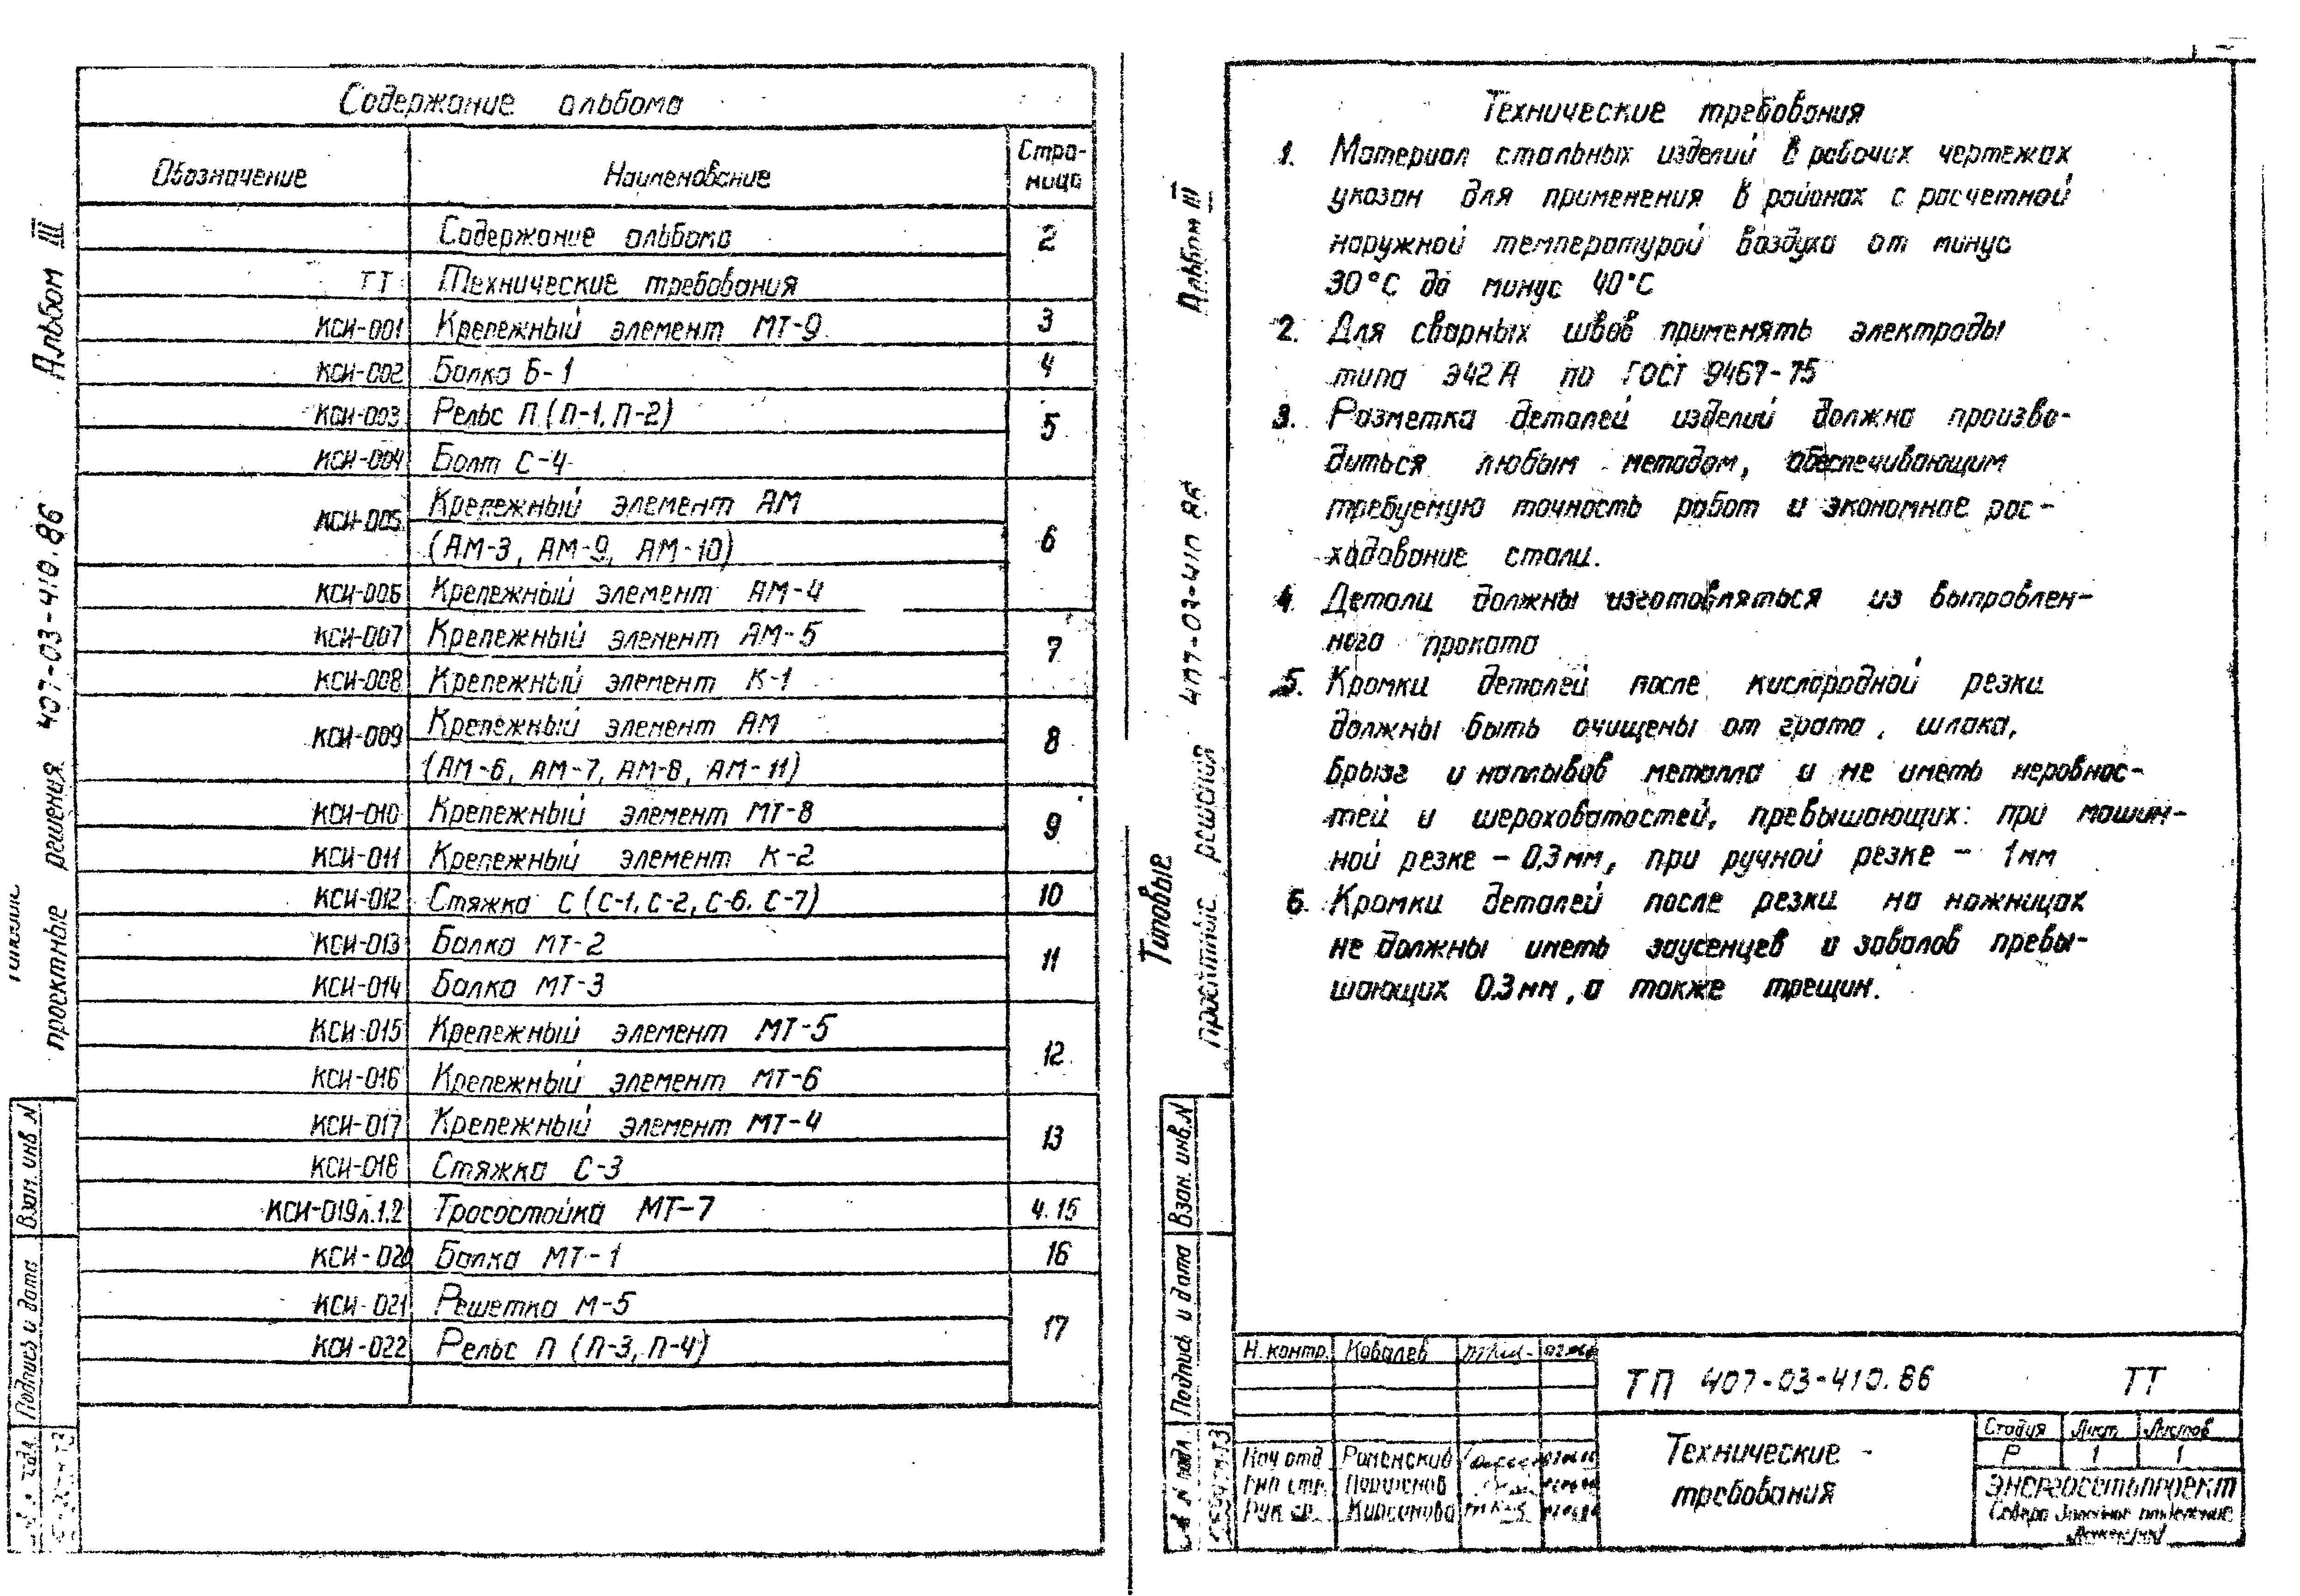 Содержание альбома
Обозначение Наименование Стра-
ница
Содержание альбома 2
ТТ Технические требования
КСИ-001 Крепежный элемент МТ-9 3
КСИ-002 Балка Б-1 4
КСИ-003 Рельс П (П-1, П-2) 5
КСИ-004 Болт С-4
КСИ-005 Крепежный элемент АМ
(АМ-3, АМ-9, АМ-10) 6
КСИ-006 Крепежный элемент АМ-4
КСИ-007 Крепежный элемент АМ-5 7
КСИ-008 Крепежный элемент К-1
КСИ-009 Крепежный элемент АМ 8
(АМ-6, АМ-7, АМ-8, АМ-11)
КСИ-010 Крепежный элемент МТ-8 9
КСИ-011 Крепежный элемент К-2
КСИ-012 Стяжка С (С-1, С-2, С-6, С-7) 10
КСИ-013 Балка МТ-2 11
КСИ-014 Балка МТ-3
КСИ-015 Крепежный элемент МТ-5 12
КСИ-016 Крепежный элемент МТ-6
КСИ-017 Крепежный элемент МТ-4 13
КСИ-018 Стяжка С-3
КСИ-019л.1.2 Тросостойка МТ-7 4.15
КСИ-020 Балка МТ-1 16
КСИ-021 Решетка М-5 17
КСИ-022 Рельс П (П-3, П-4)
Альбом III
проектные решения 407-03-410.86
Взам. инв. N
Подпись и дата
Технические требования
1. Материал стальных изделий в рабочих чертежах
указан для применения в районах с расчетной
наружной температурой воздуха от минус
30°С до минус 40°С
2. Для сварных швов применять электроды
типа Э42А по ГОСТ 9467-75
3. Разметка деталей изделий должна произво-
диться любым методом, обеспечивающим
требуемую точность работ и экономное рас-
ходование стали.
4. Детали должны изготовляться из выправлен-
ного проката
5. Кромки деталей после кислородной резки
должны быть очищены от грата, шлака,
брызг и наплывов металла и не иметь неровнос-
тей и шероховатостей, превышающих: при машин-
ной резке - 0,3мм, при ручной резке - 1мм
6. Кромки деталей после резки на ножницах
не должны иметь заусенцев и завалов превы-
шающих 0.3мм, а также трещин.
Альбом III
Типовые
проектные решения
Взам. инв. N
Подпись и дата
Н. контр. Ковалев
ТП 407-03-410.86 ТТ
Нач отд Роменский
Рук гр. Кирсанова
Технические
требования
Стадия Лист Листов
Р 1 1
ЭНЕРГОСЕТЬПРОЕКТ
Северо-Западное отделение
Ленинград